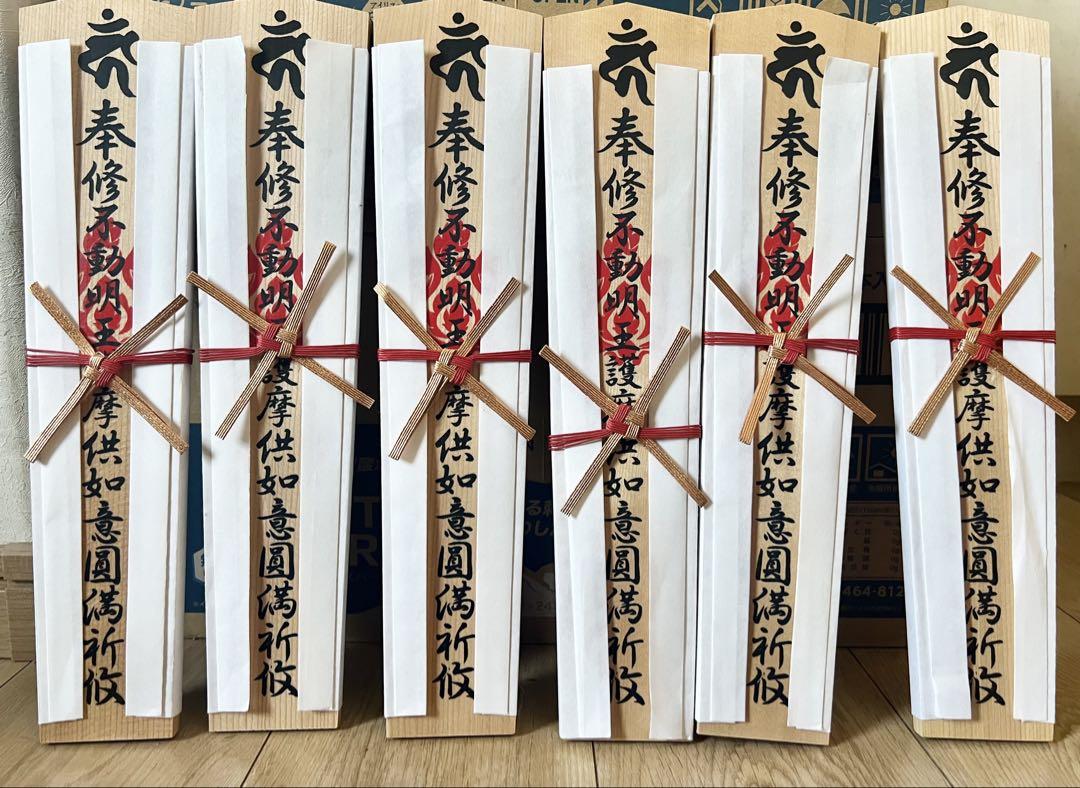 奉修不動明王護摩供如意圓満祈攸
奉修不動明護摩供如意圓満祈攸
奉修不動明王護摩供如意圓満祈攸
奉修不動明王摩供如意圓満祈攸
奉修不動明護摩供如意圓満祈攸
奉修不動明王摩供如意圓満祈攸
OPEN
464-812